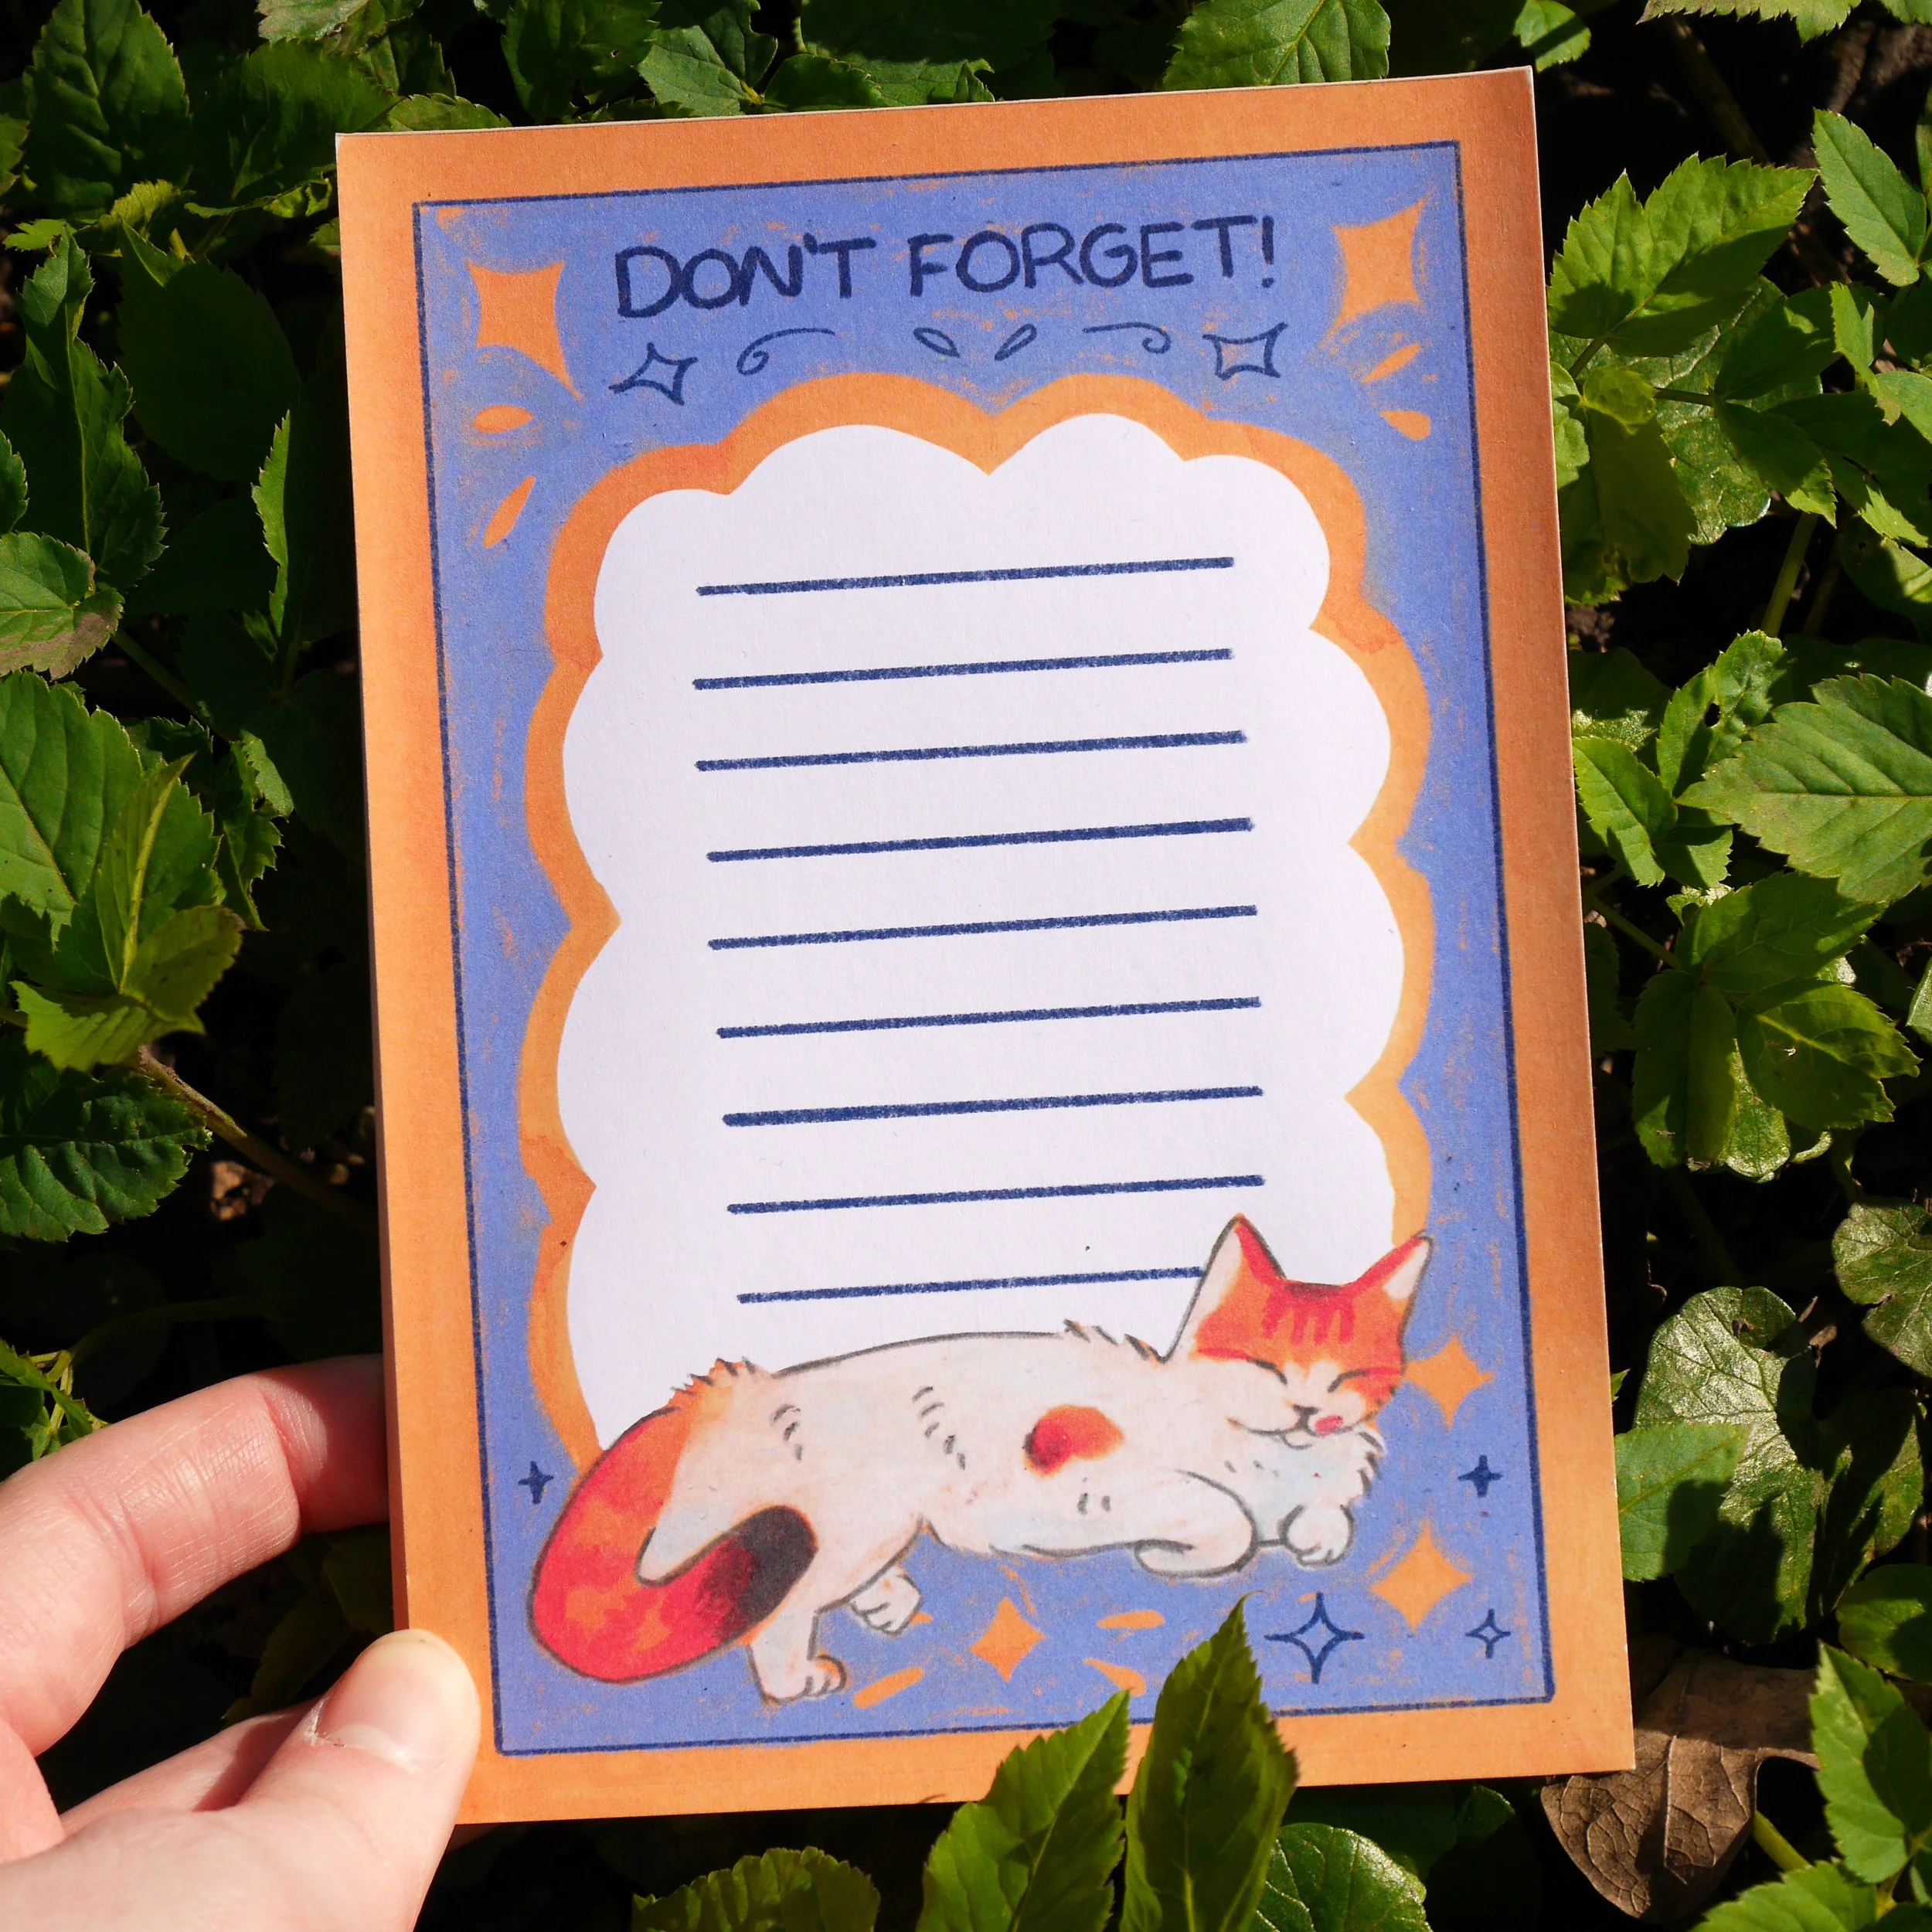 DON'T FORGET!